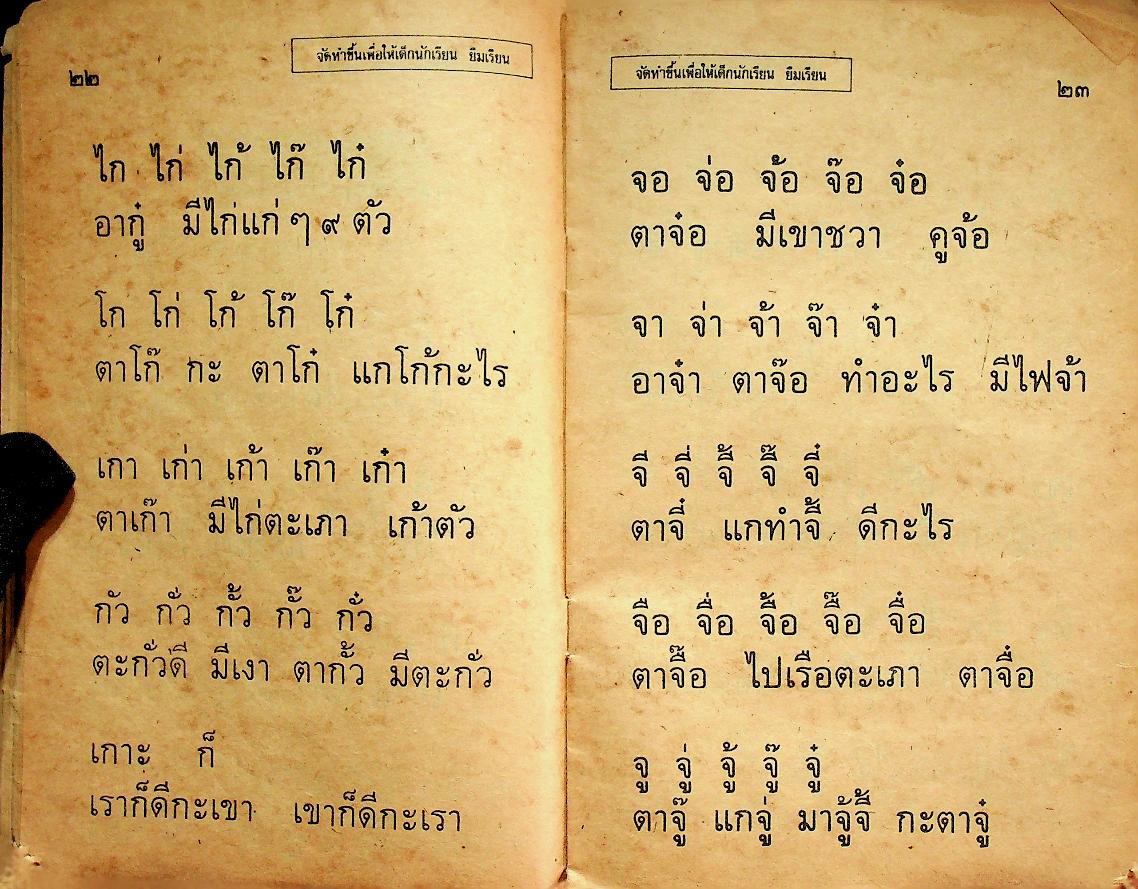 ๒๒
จัดทำขึ้นเพื่อให้เด็กนักเรียน ยืมเรียน
ไก ไก่ ไก้ ไก๊ ไก๋
อากู๋ มีไก่แก่ ๆ ๙ ตัว
โก โก่ โก้ โก๊ โก๋
ตาโก๊ กะ ตาโก๋ แกโก้กะไร
เกา เก่า เก้า เก๊า เก๋า
ตาเก๊า มีไก่ตะเภา เก้าตัว
กัว กั่ว กั้ว กั๊ว กั๋ว
ตะกั่วดี มีเงา ตากั้ว มีตะกั่ว
เกาะ ก็
เราก็ดีกะเขา เขาก็ดีกะเรา
จัดทำขึ้นเพื่อให้เด็กนักเรียน ยืมเรียน
๒๓
จอ จ่อ จ้อ จ๊อ จ๋อ
ตาจ๋อ มีเขาชวา คูจ้อ
จา จ่า จ้า จ๊า จ๋า
อาจ๋า ตาจ๊อ ทำอะไร มีไฟจ้า
จี จี่ จี้ จี๊ จี๋
ตาจี๋ แกทำจี้ ดีกะไร
จือ จื่อ จื้อ จื๊อ จื๋อ
ตาจื๊อ ไปเรือตะเภา ตาจื๋อ
จู จู่ จู้ จู๊ จู๋
ตาจู๊ แกจู่ มาจู้จี้ กะตาจู๋